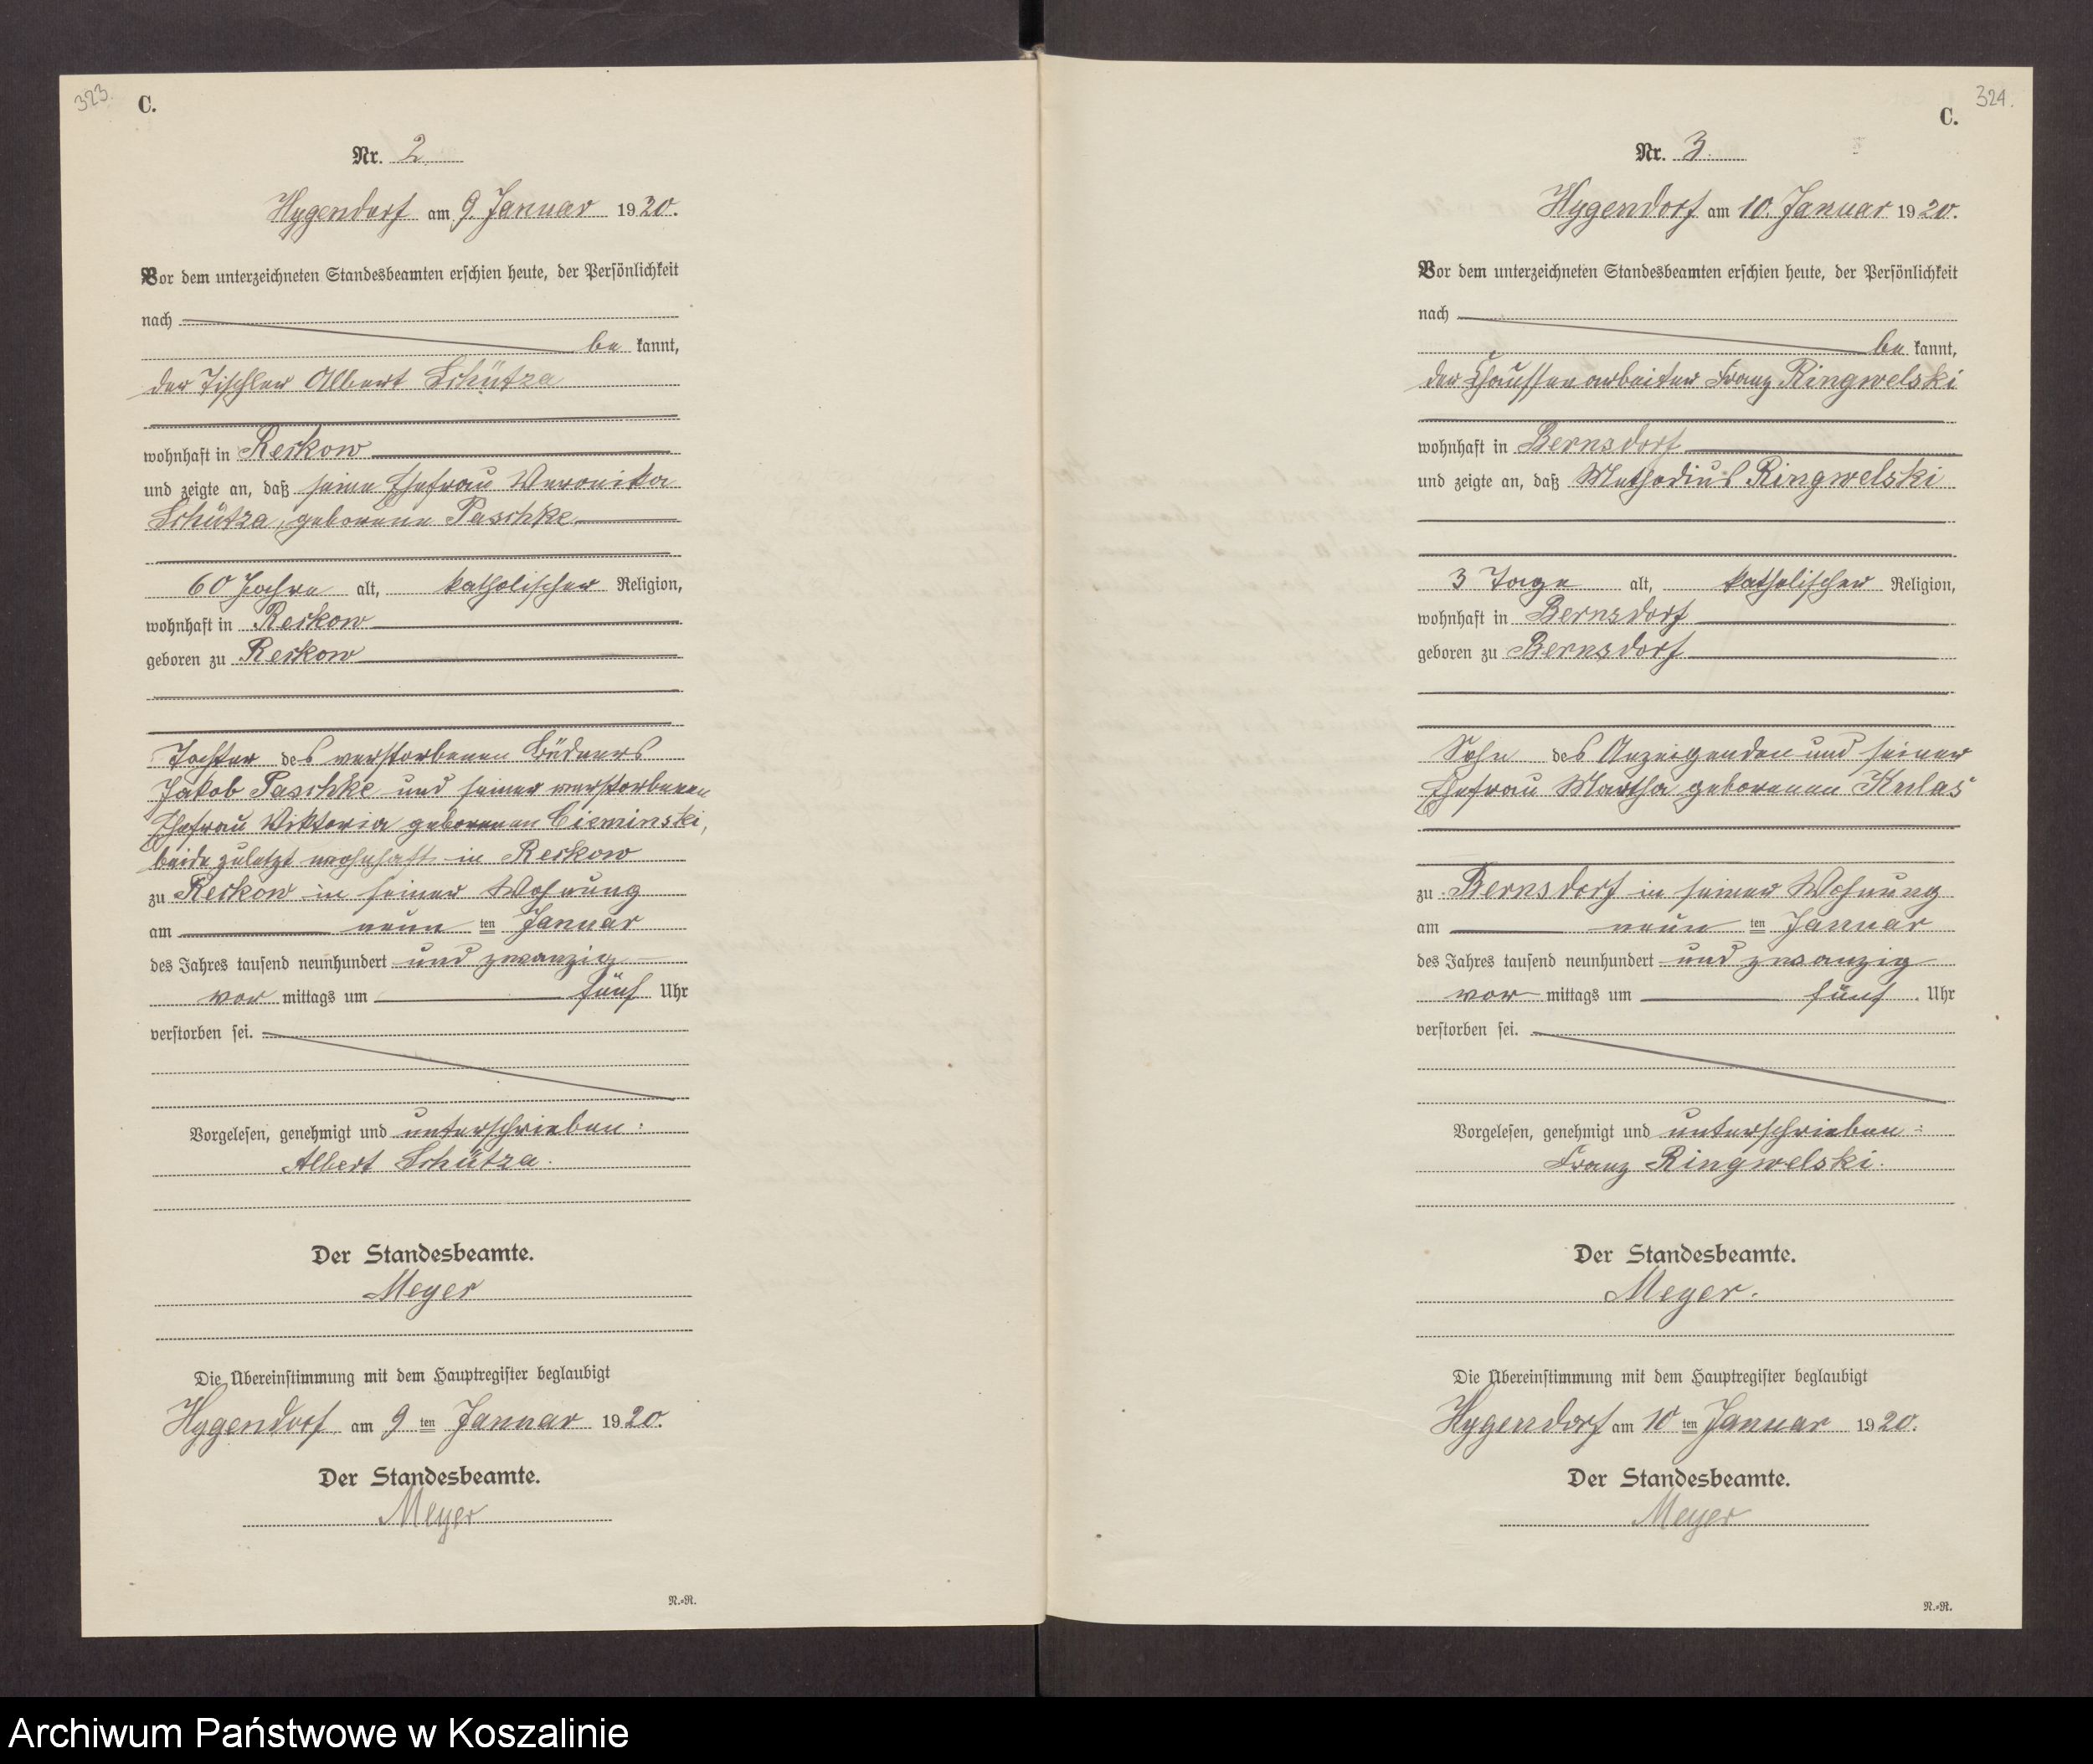 323.
C.
Nr. 2.
Hygendorf am 9. Januar 1920.
Vor dem unterzeichneten Standesbeamten erschien heute, der Persönlichkeit
nach
be kannt,
der Tischler Albert Schütza
wohnhaft in Reckow
und zeigte an, daß seine Ehefrau Veronika
Schütza, geborene Paschke
60 Jahre alt, katholischer Religion,
wohnhaft in Reckow
geboren zu Reckow
Tochter des verstorbenen Büdners
Jakob Paschke und seiner verstorbenen
Ehefrau Viktoria geborenen Cieminski,
beide zuletzt wohnhaft in Reckow
zu Reckow in seiner Wohnung
am neun ten Januar
des Jahres tausend neunhundert und zwanzig
vor mittags um fünf Uhr
verstorben sei.
Vorgelesen, genehmigt und unterschrieben:
Albert Schütza.
Der Standesbeamte.
Meyer
Die Übereinstimmung mit dem Hauptregister beglaubigt
Hygendorf am 9 ten Januar 1920.
Der Standesbeamte.
Meyer
N.=R.
324.
C.
Nr. 3.
Hygendorf am 10. Januar 1920.
Vor dem unterzeichneten Standesbeamten erschien heute, der Persönlichkeit
nach
be kannt,
der Chausseearbeiter Franz Ringwelski
wohnhaft in Bernsdorf
und zeigte an, daß Methodius Ringwelski
3 Tage alt, katholischer Religion,
wohnhaft in Bernsdorf
geboren zu Bernsdorf
Sohn des Anzeigenden und seiner
Ehefrau Martha geborenen Kulas
zu Bernsdorf in seiner Wohnung
am neun ten Januar
des Jahres tausend neunhundert und zwanzig
vor mittags um fünf Uhr
verstorben sei.
Vorgelesen, genehmigt und unterschrieben:
Franz Ringwelski.
Der Standesbeamte.
Meyer.
Die Übereinstimmung mit dem Hauptregister beglaubigt
Hygendorf am 10 ten Januar 1920.
Der Standesbeamte.
Meyer
N.=R.
Archiwum Państwowe w Koszalinie